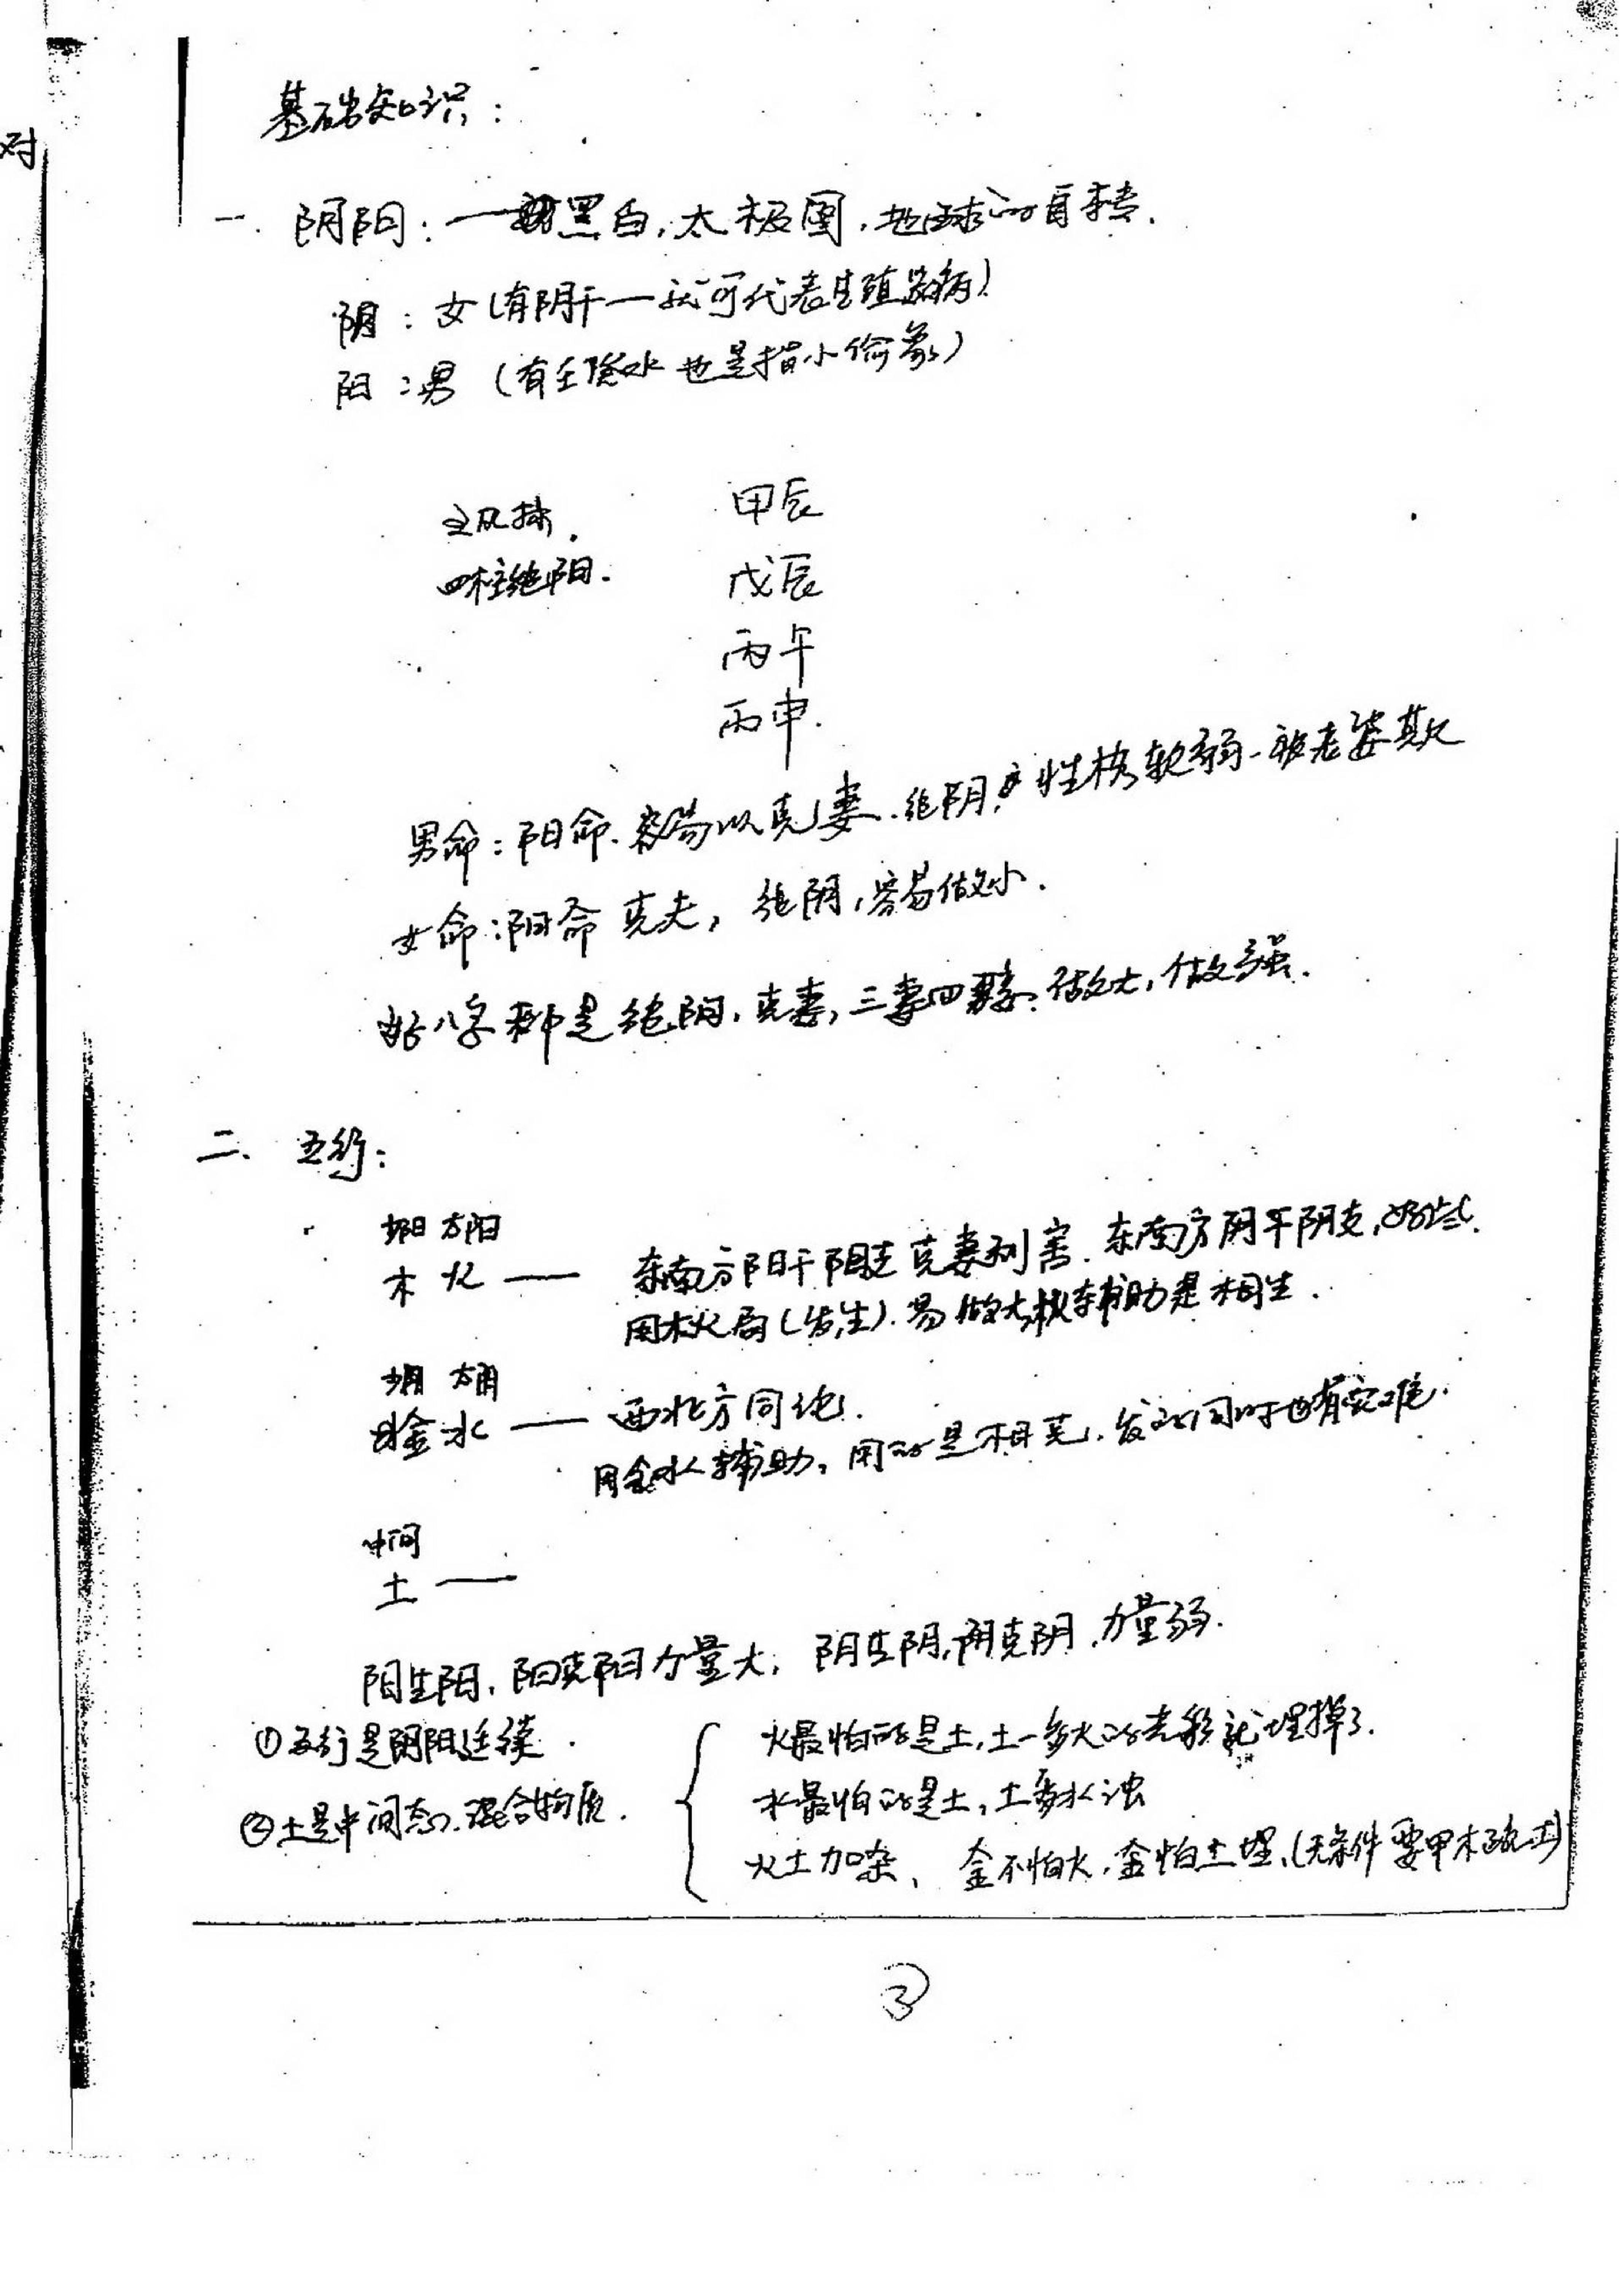 对
基础知识：
一. 阴阳：一 黑白，太极图，地球的自转.
阴：女（有阴干一就可代表生殖器病）
阳：男（有壬癸水也是指小偷象）
甲辰
四柱纯阳.
戊辰
丙午
丙申.
男命：阳命.容易以克妻.纯阴，性格软弱-被老婆欺
女命：阳命克夫，纯阴，容易做小.
好八字都是纯阴，克妻，三妻四妾.做大，做强.
二、五行：
少阳 太阳
木 火 —— 东南方阳干阳支克妻利害.东南方阴干阴支，好些.
用木火局（发生）.易做大，辅助是相生.
少阴 太阴
金水 —— 西北方同论.
用金水辅助，用的是相克，发的同时也有灾难.
中间
土 ——
阳生阳，阳克阳力量大，阴生阴，阴克阴，力量弱.
①五行是阴阳延续.
②土是中间态，混合物质.
火最怕的是土，土一多火的光彩就埋掉了.
水最怕的是土，土多水浊
火土加杂、金不怕火，金怕土埋、（无条件要甲木疏土）
③